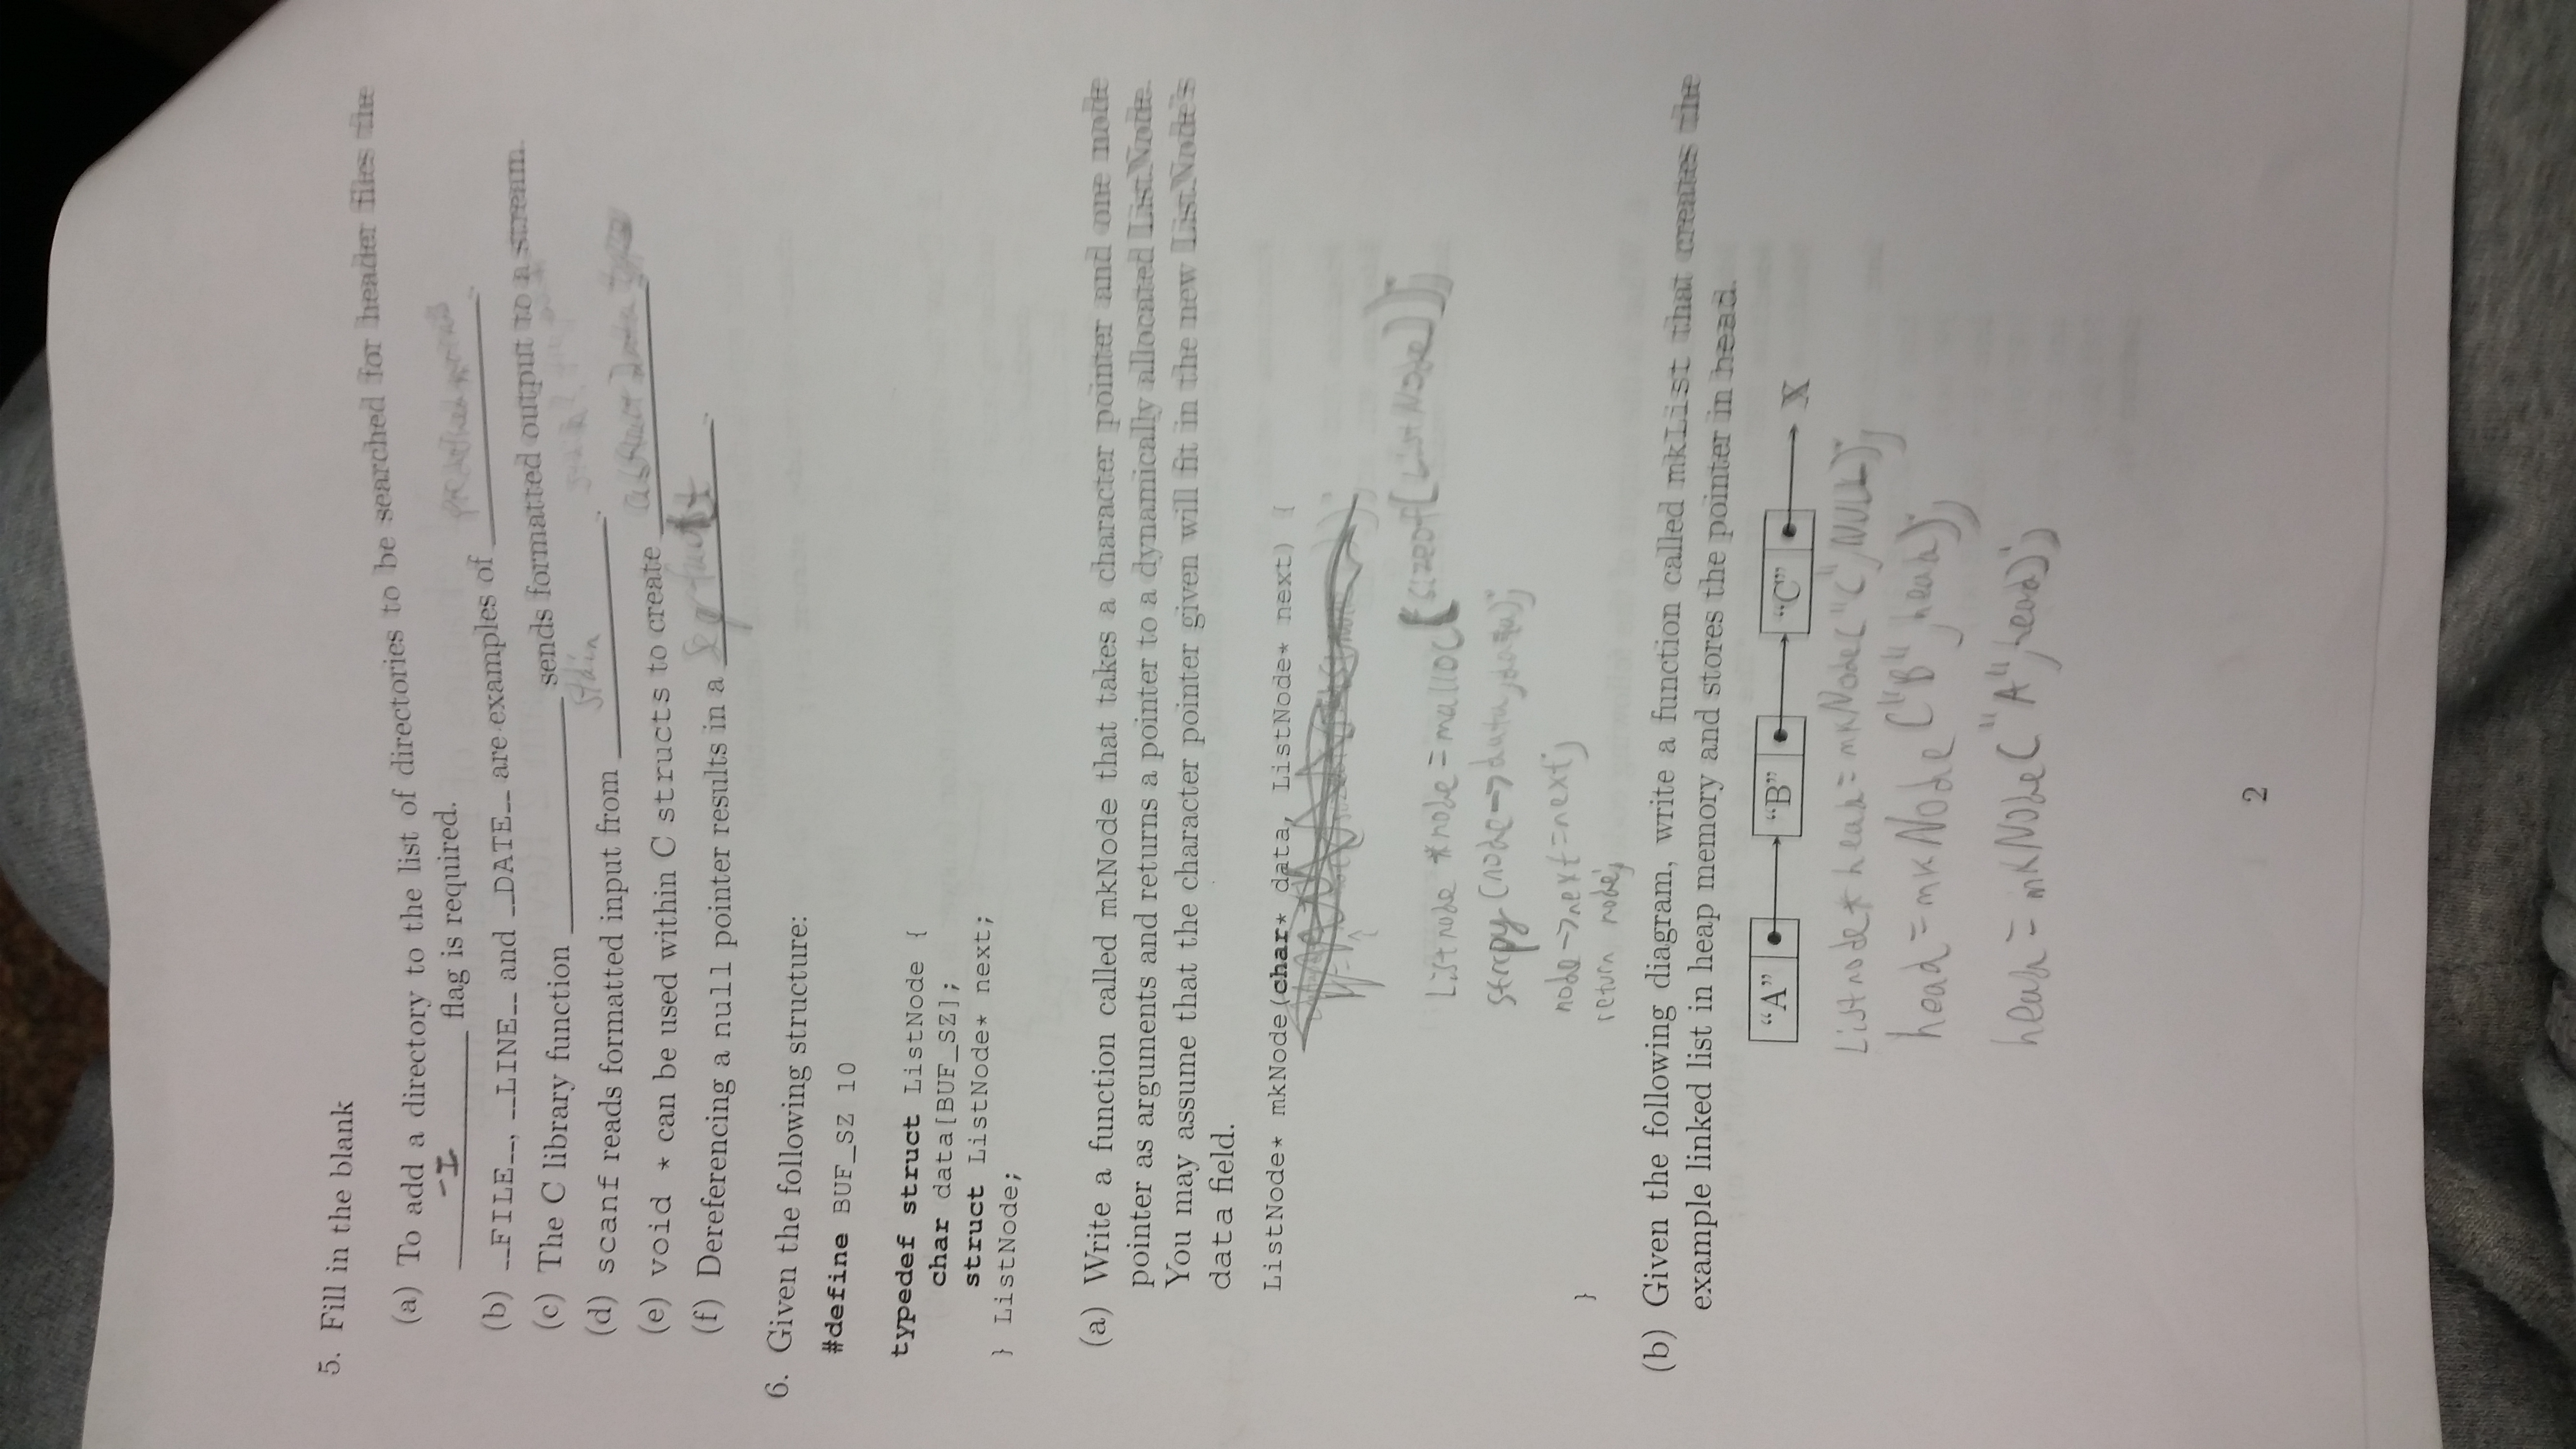 5. Fill in the blank
(a) To add a directory to the list of directories to be searched for header files the
-I flag is required.
(b) __FILE__, __LINE__ and __DATE__ are examples of ____.
(c) The C library function ____ sends formatted output to a stream.
(d) scanf reads formatted input from stdin.
(e) void * can be used within C structs to create abstract Data types
(f) Dereferencing a null pointer results in a Seg fault.
6. Given the following structure:
#define BUF_SZ 10
typedef struct ListNode {
char data[BUF_SZ];
struct ListNode* next;
} ListNode;
(a) Write a function called mkNode that takes a character pointer and one node
pointer as arguments and returns a pointer to a dynamically allocated ListNode.
You may assume that the character pointer given will fit in the new ListNode's
data field.
ListNode* mkNode(char* data, ListNode* next) {
Listnode *node = malloc(sizeof(ListNode));
strcpy(node->data, data);
node->next=next;
return node;
}
(b) Given the following diagram, write a function called mkList that creates the
example linked list in heap memory and stores the pointer in head.
“A” “B” “C” X
Listnode* head = mkNode("C", NULL);
head = mkNode("B", head);
head = mkNode("A", head);
2